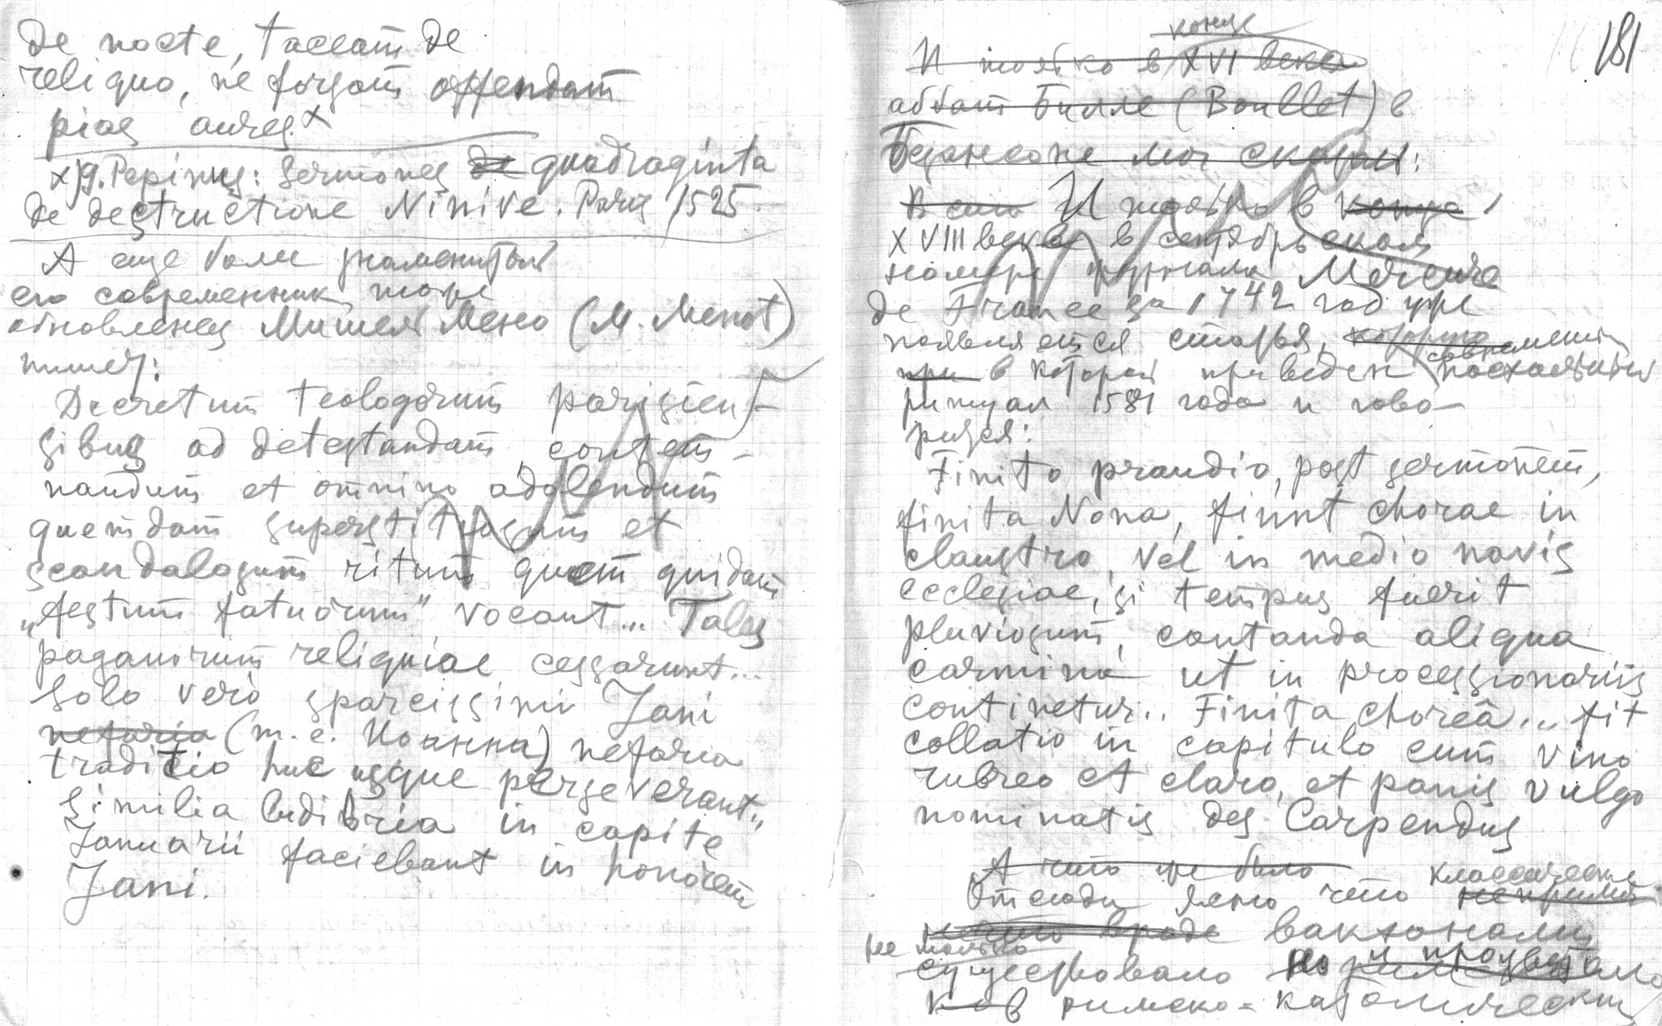 de nocte, taceam de
reliquo, ne forsam offendam
pias aures x
x) g. Pepinus: Sermones de quadraginta
de destructione Ninive. Paris 1525.
А еще более знаменитый
его современник, тоже
обновленец Мишель Мено (M. Menot)
пишет:
Decretum teologorum parisien-
sibus ad detestandam, contem-
nandum et omnino adolendum
quemdam superstitiosum et
scandalosum ritum quem quidam
„festum fatuorum" vocant... Tales
paganorum reliquiae cessarunt...
Solo vero sparcissimi Jani
nefaria (т. е. Иоанна) nefaria
traditio huc usque perseverant..
Similia ludibria in capite
Januarii faciebant in honorem
Jani.
181
конце
И только в XVI века
аббат Булле (Boullet) в
Безансоне мог сказать:
И только в конце
XVIII века в сентябрьском
номере журнала Mercure
de France за 1742 год уже
появляется статья, которо
современный
при в которой приведен пасхальный
ритуал 1581 года и гово-
рится:
Finito prandio, post sermonem,
finita Nona, fiunt chorae in
claustro, vel in medio navis
ecclesiae, si tempus fuerit
pluviosum, contanda aliqua
carmina ut in processionariis
continetur.. Finita chorea... fit
collatio in capitulo cum vino
rubreo et claro, et panis vulgo
nominatis des Carpendus
А что же было
классические
Отсюда ясно что
вроде вакханалии
не только
существовало но и процветало
в римско-католических